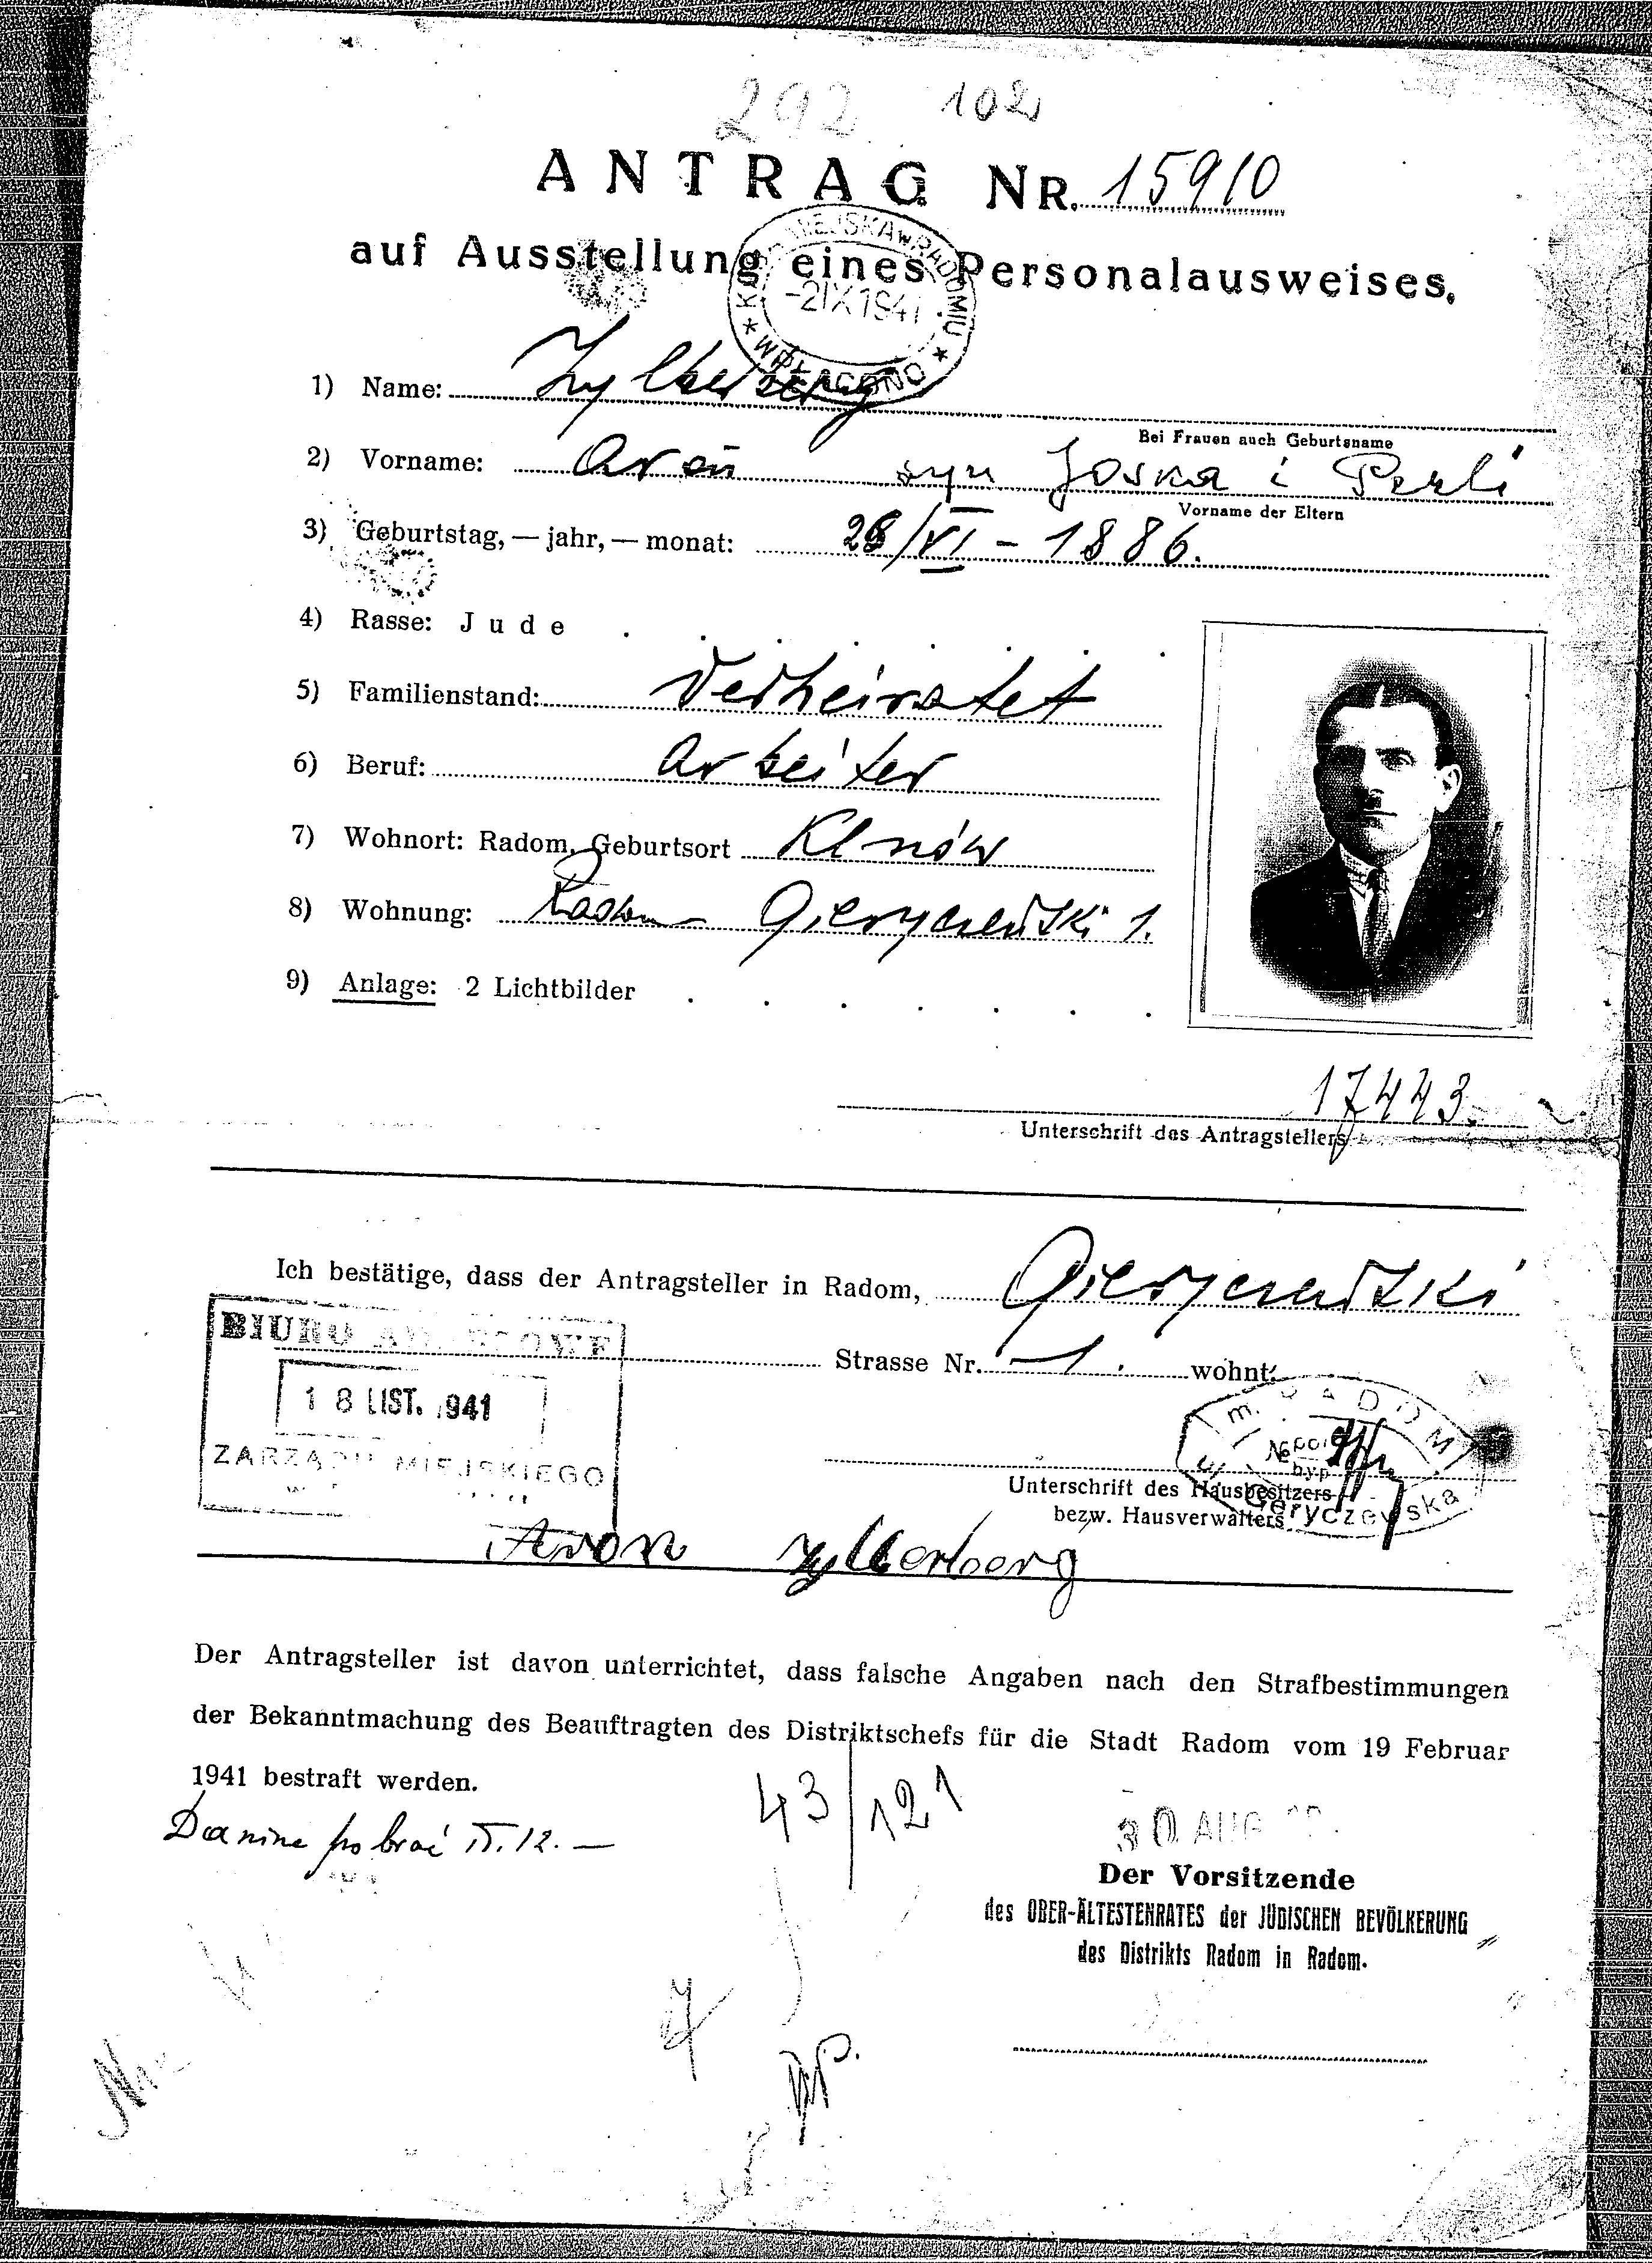 292 102
ANTRAG NR. 15910
auf Ausstellung eines Personalausweises.
KASA MIEJSKA w RADOMIU
-2 IX 1941
WPŁACONO
1) Name: Zylberberg
Bei Frauen auch Geburtsname
2) Vorname: Aron syn Joska i Perli
Vorname der Eltern
3) Geburtstag, — jahr, — monat: 28/VI - 1886.
4) Rasse: Jude
5) Familienstand: Verheiratet
6) Beruf: Arbeiter
7) Wohnort: Radom, Geburtsort Klnów
8) Wohnung: Radom Gieryczewski 1.
9) Anlage: 2 Lichtbilder
17443
Unterschrift des Antragstellers
Ich bestätige, dass der Antragsteller in Radom, Gieryczewski
Strasse Nr. 1. wohnt.
BIURO ADRESOWE
18 LIST. 1941
ZARZĄDU MIEJSKIEGO
m. RADOM
Geryczewska
Unterschrift des Hausbesitzers
bezw. Hausverwalters
Aron Zylberberg
Der Antragsteller ist davon unterrichtet, dass falsche Angaben nach den Strafbestimmungen
der Bekanntmachung des Beauftragten des Distriktschefs für die Stadt Radom vom 19 Februar
1941 bestraft werden.
43/121
Daninę pobrać zł. 12. —
30 AUG
Der Vorsitzende
des OBER-ÄLTESTENRATES der JÜDISCHEN BEVÖLKERUNG
des Distrikts Radom in Radom.